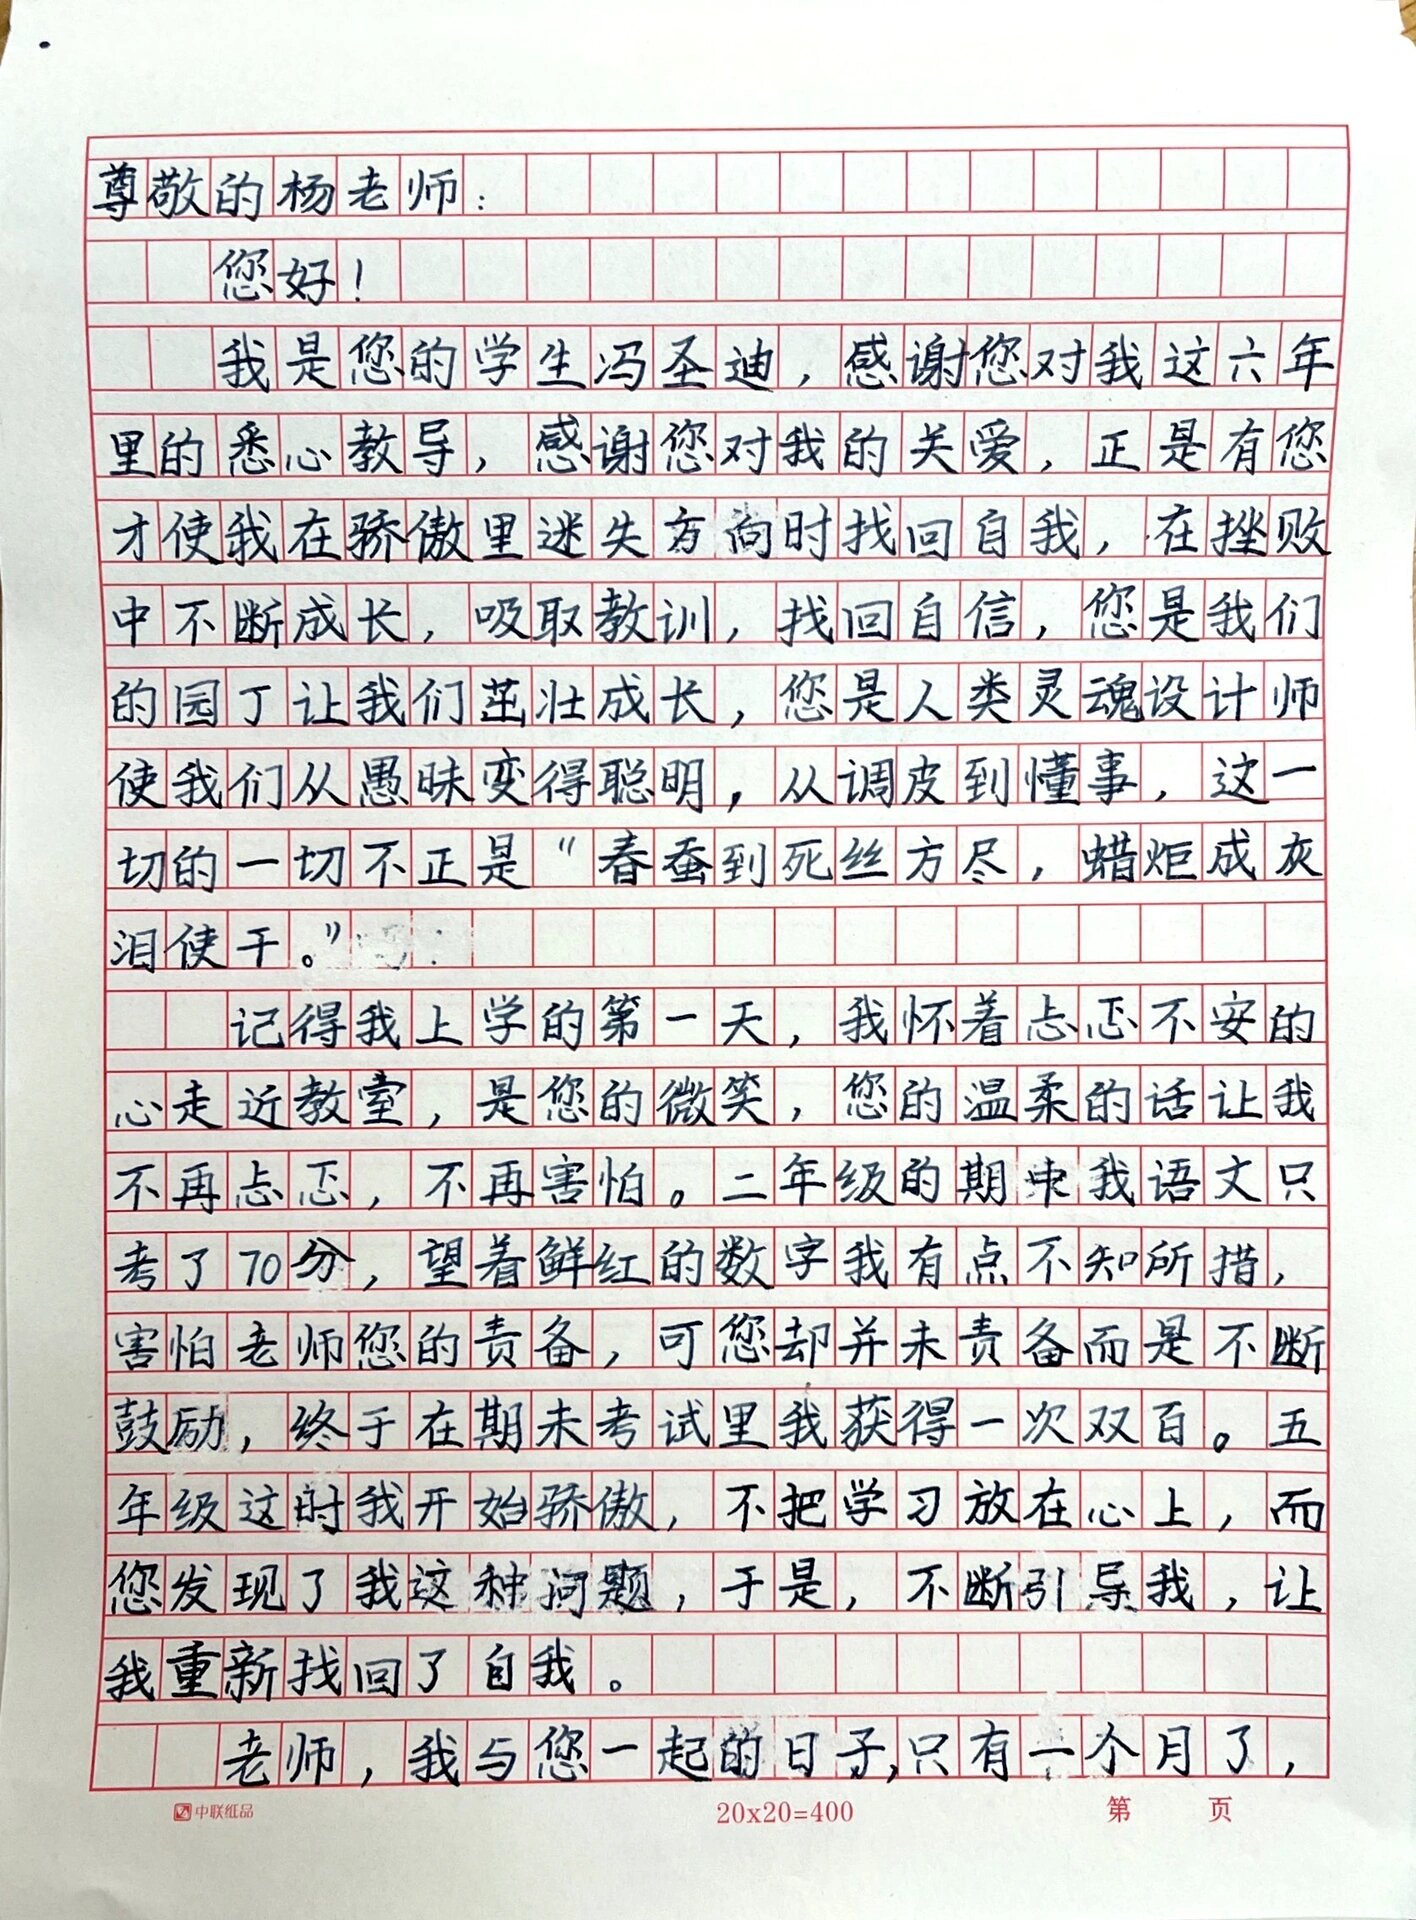 尊敬的杨老师：
您好！
我是您的学生冯圣迪，感谢您对我这六年
里的悉心教导，感谢您对我的关爱，正是有您
才使我在骄傲里迷失方向时找回自我，在挫败
中不断成长，吸取教训，找回自信，您是我们
的园丁让我们茁壮成长，您是人类灵魂设计师
使我们从愚昧变得聪明，从调皮到懂事，这一
切的一切不正是“春蚕到死丝方尽，蜡炬成灰
泪使干。”
记得我上学的第一天，我怀着忐忑不安的
心走近教室，是您的微笑，您的温柔的话让我
不再忐忑，不再害怕。二年级的期中我语文只
考了70分，望着鲜红的数字我有点不知所措，
害怕老师您的责备，可您却并未责备而是不断
鼓励，终于在期末考试里我获得一次双百。五
年级这时我开始骄傲，不把学习放在心上，而
您发现了我这种问题，于是，不断引导我，让
我重新找回了自我。
老师，我与您一起的日子，只有一个月了，
中联纸品 20x20=400 第 页